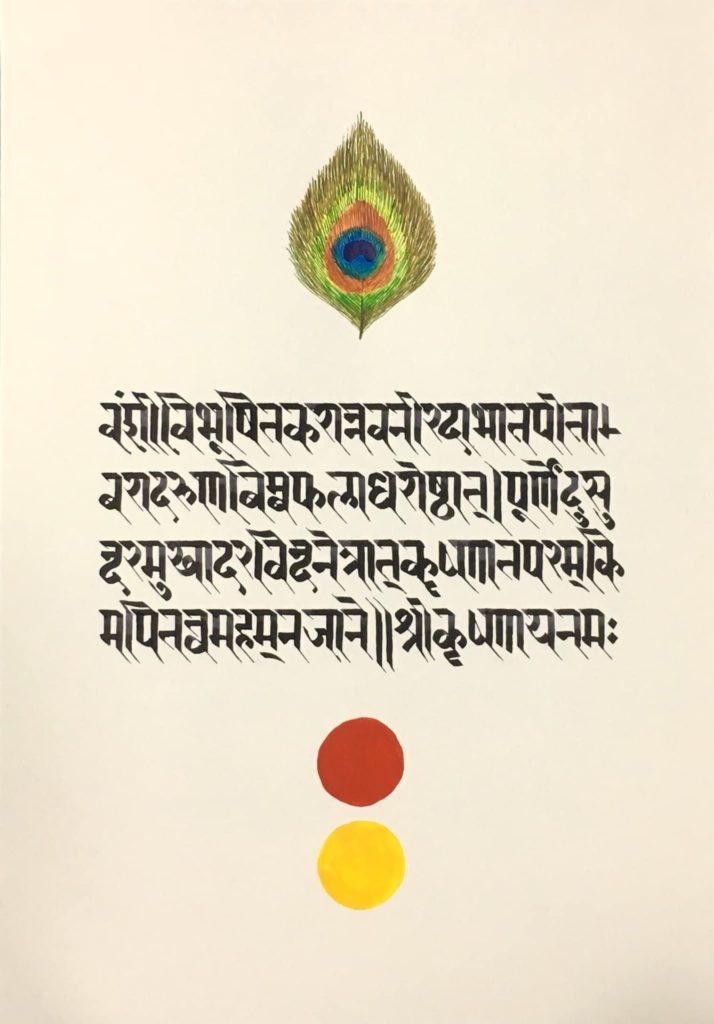 वंशीविभूषितकरान्नवनीरदाभातपीताम्
बरादरुणबिम्बफलाधरोष्ठात्।पूर्णेंदुसु
न्दरमुखादरविन्दनेत्रात्कृष्णातपरम्कि
मपितत्त्वमहम्नजाने॥श्रीकृष्णायनमः